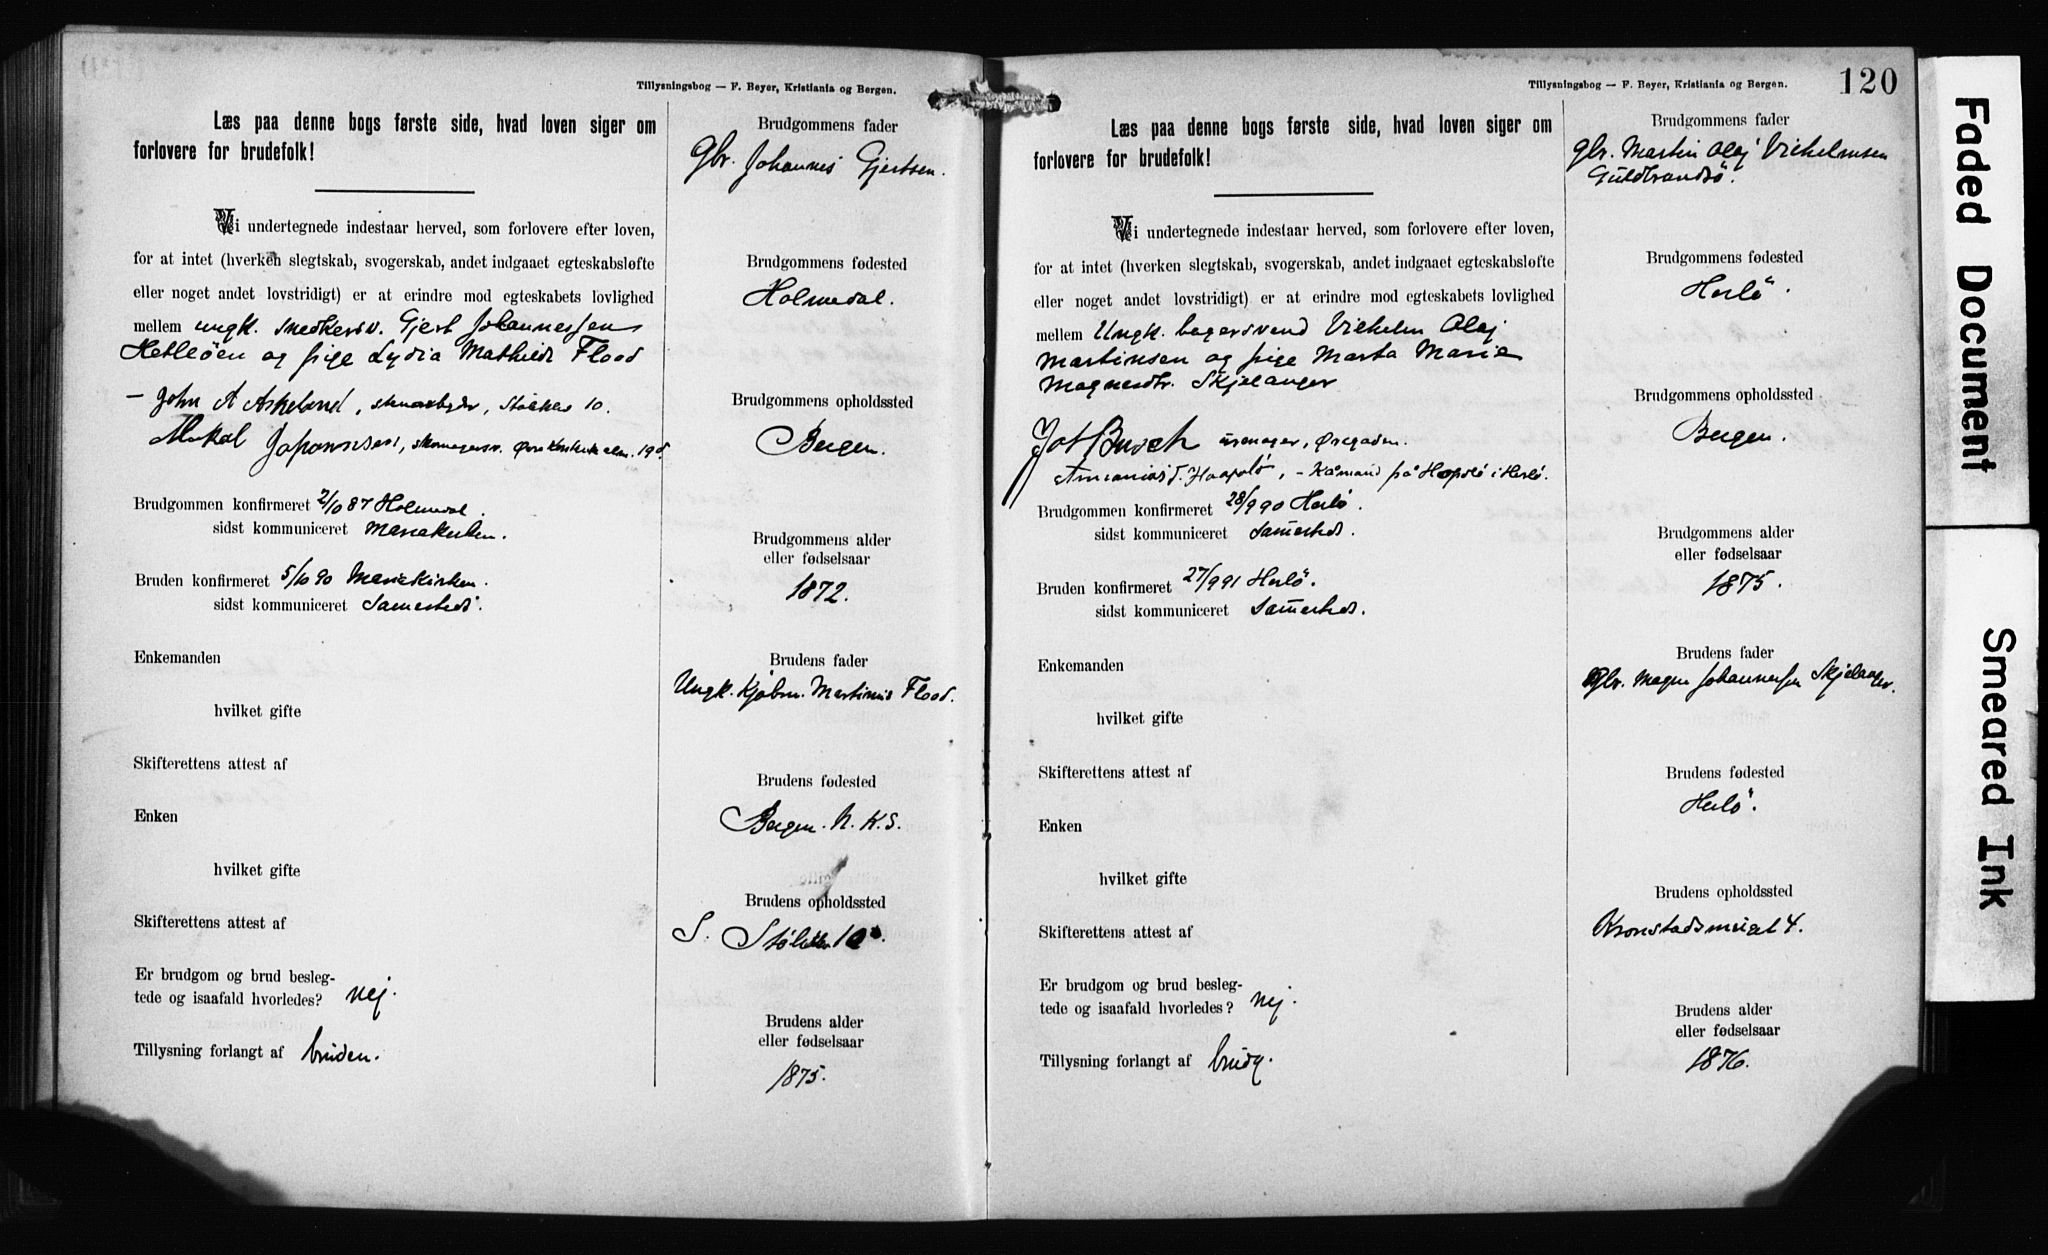 Tillysningsbog — F. Beyer, Kristiania og Bergen.
Læs paa denne bogs første side, hvad loven siger om
forlovere for brudefolk!
Vi undertegnede indestaar herved, som forlovere efter loven,
for at intet (hverken slegtskab, svogerskab, andet indgaaet egteskabsløfte
eller noget andet lovstridigt) er at erindre mod egteskabets lovlighed
mellem ungk. snedkersv. Gjert Johannessen
Hetleøen og pige Lydia Mathilde Flood
— John A Askeland, Stølen 10.
Johannesen, skomagersv. 19d.
Brudgommen konfirmeret 2/10 87 Holmedal.
sidst kommuniceret Mariakirken.
Bruden konfirmeret 5/10 90 Mariekirken.
sidst kommuniceret Samesteds.
Enkemanden
hvilket gifte
Skifterettens attest af
Enken
hvilket gifte
Skifterettens attest af
Er brudgom og brud besleg-
tede og isaafald hvorledes? nej.
Tillysning forlangt af bruden.
Brudgommens fader
Gbr. Johannes Gjertsen.
Brudgommens fødested
Holmedal.
Brudgommens opholdssted
Bergen.
Brudgommens alder
eller fødselsaar
1872.
Brudens fader
Ungk. Kjøbm. Martinus Flood.
Brudens fødested
Bergen. N. K. S.
Brudens opholdssted
S. Stølen 10
Brudens alder
eller fødselsaar
1875.
Tillysningsbog — F. Beyer, Kristiania og Bergen.
120
Læs paa denne bogs første side, hvad loven siger om
forlovere for brudefolk!
Vi undertegnede indestaar herved, som forlovere efter loven,
for at intet (hverken slegtskab, svogerskab, andet indgaaet egteskabsløfte
eller noget andet lovstridigt) er at erindre mod egteskabets lovlighed
mellem Ungk. bagersvend Vilhelm Olaj
Martinsen og pige Marta Marie
Magnesdtr. Skjelanger
Busch urmager, Øregaden.
Haapslø, – på Hopslø i Herlø.
Brudgommen konfirmeret 28/9 90 Herlö.
sidst kommuniceret Samesteds.
Bruden konfirmeret 27/9 91 Herlö.
sidst kommuniceret Samesteds.
Enkemanden
hvilket gifte
Skifterettens attest af
Enken
hvilket gifte
Skifterettens attest af
Er brudgom og brud besleg-
tede og isaafald hvorledes? nej.
Tillysning forlangt af brudg.
Brudgommens fader
gbr. Martin Olaj Vilhelmsen
Guldbrandsö.
Brudgommens fødested
Herlö.
Brudgommens opholdssted
Bergen.
Brudgommens alder
eller fødselsaar
1875.
Brudens fader
Gbr. Magne Johannessen Skjelanger.
Brudens fødested
Herlö.
Brudens opholdssted
Kronstadsveien 4.
Brudens alder
eller fødselsaar
1876.
Faded Document
Smeared Ink